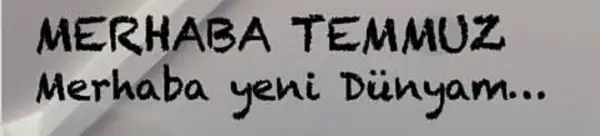 MERHABA TEMMUZ
Merhaba yeni Dünyam...